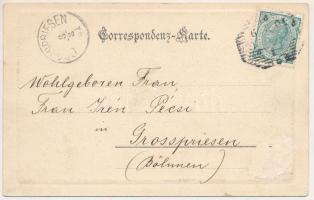 Correspondenz-Karte.
Wohlgeboren Frau
Frau Irén Pécsi
in
Grosspriesen
(Böhmen)